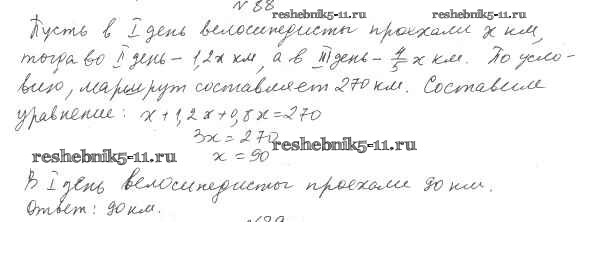 № 88
reshebnik5-11.ru
reshebnik5-11.ru
Пусть в I день велосипедисты проехали x км,
тогда во II день – 1,2x км, а в III день – 4/5 x км. По усло-
вию, маршрут составляет 270 км. Составим
уравнение: x + 1,2x + 0,8x = 270
3x = 270
reshebnik5-11.ru
reshebnik5-11.ru
x = 90
В I день велосипедисты проехали 90 км.
Ответ: 90 км.